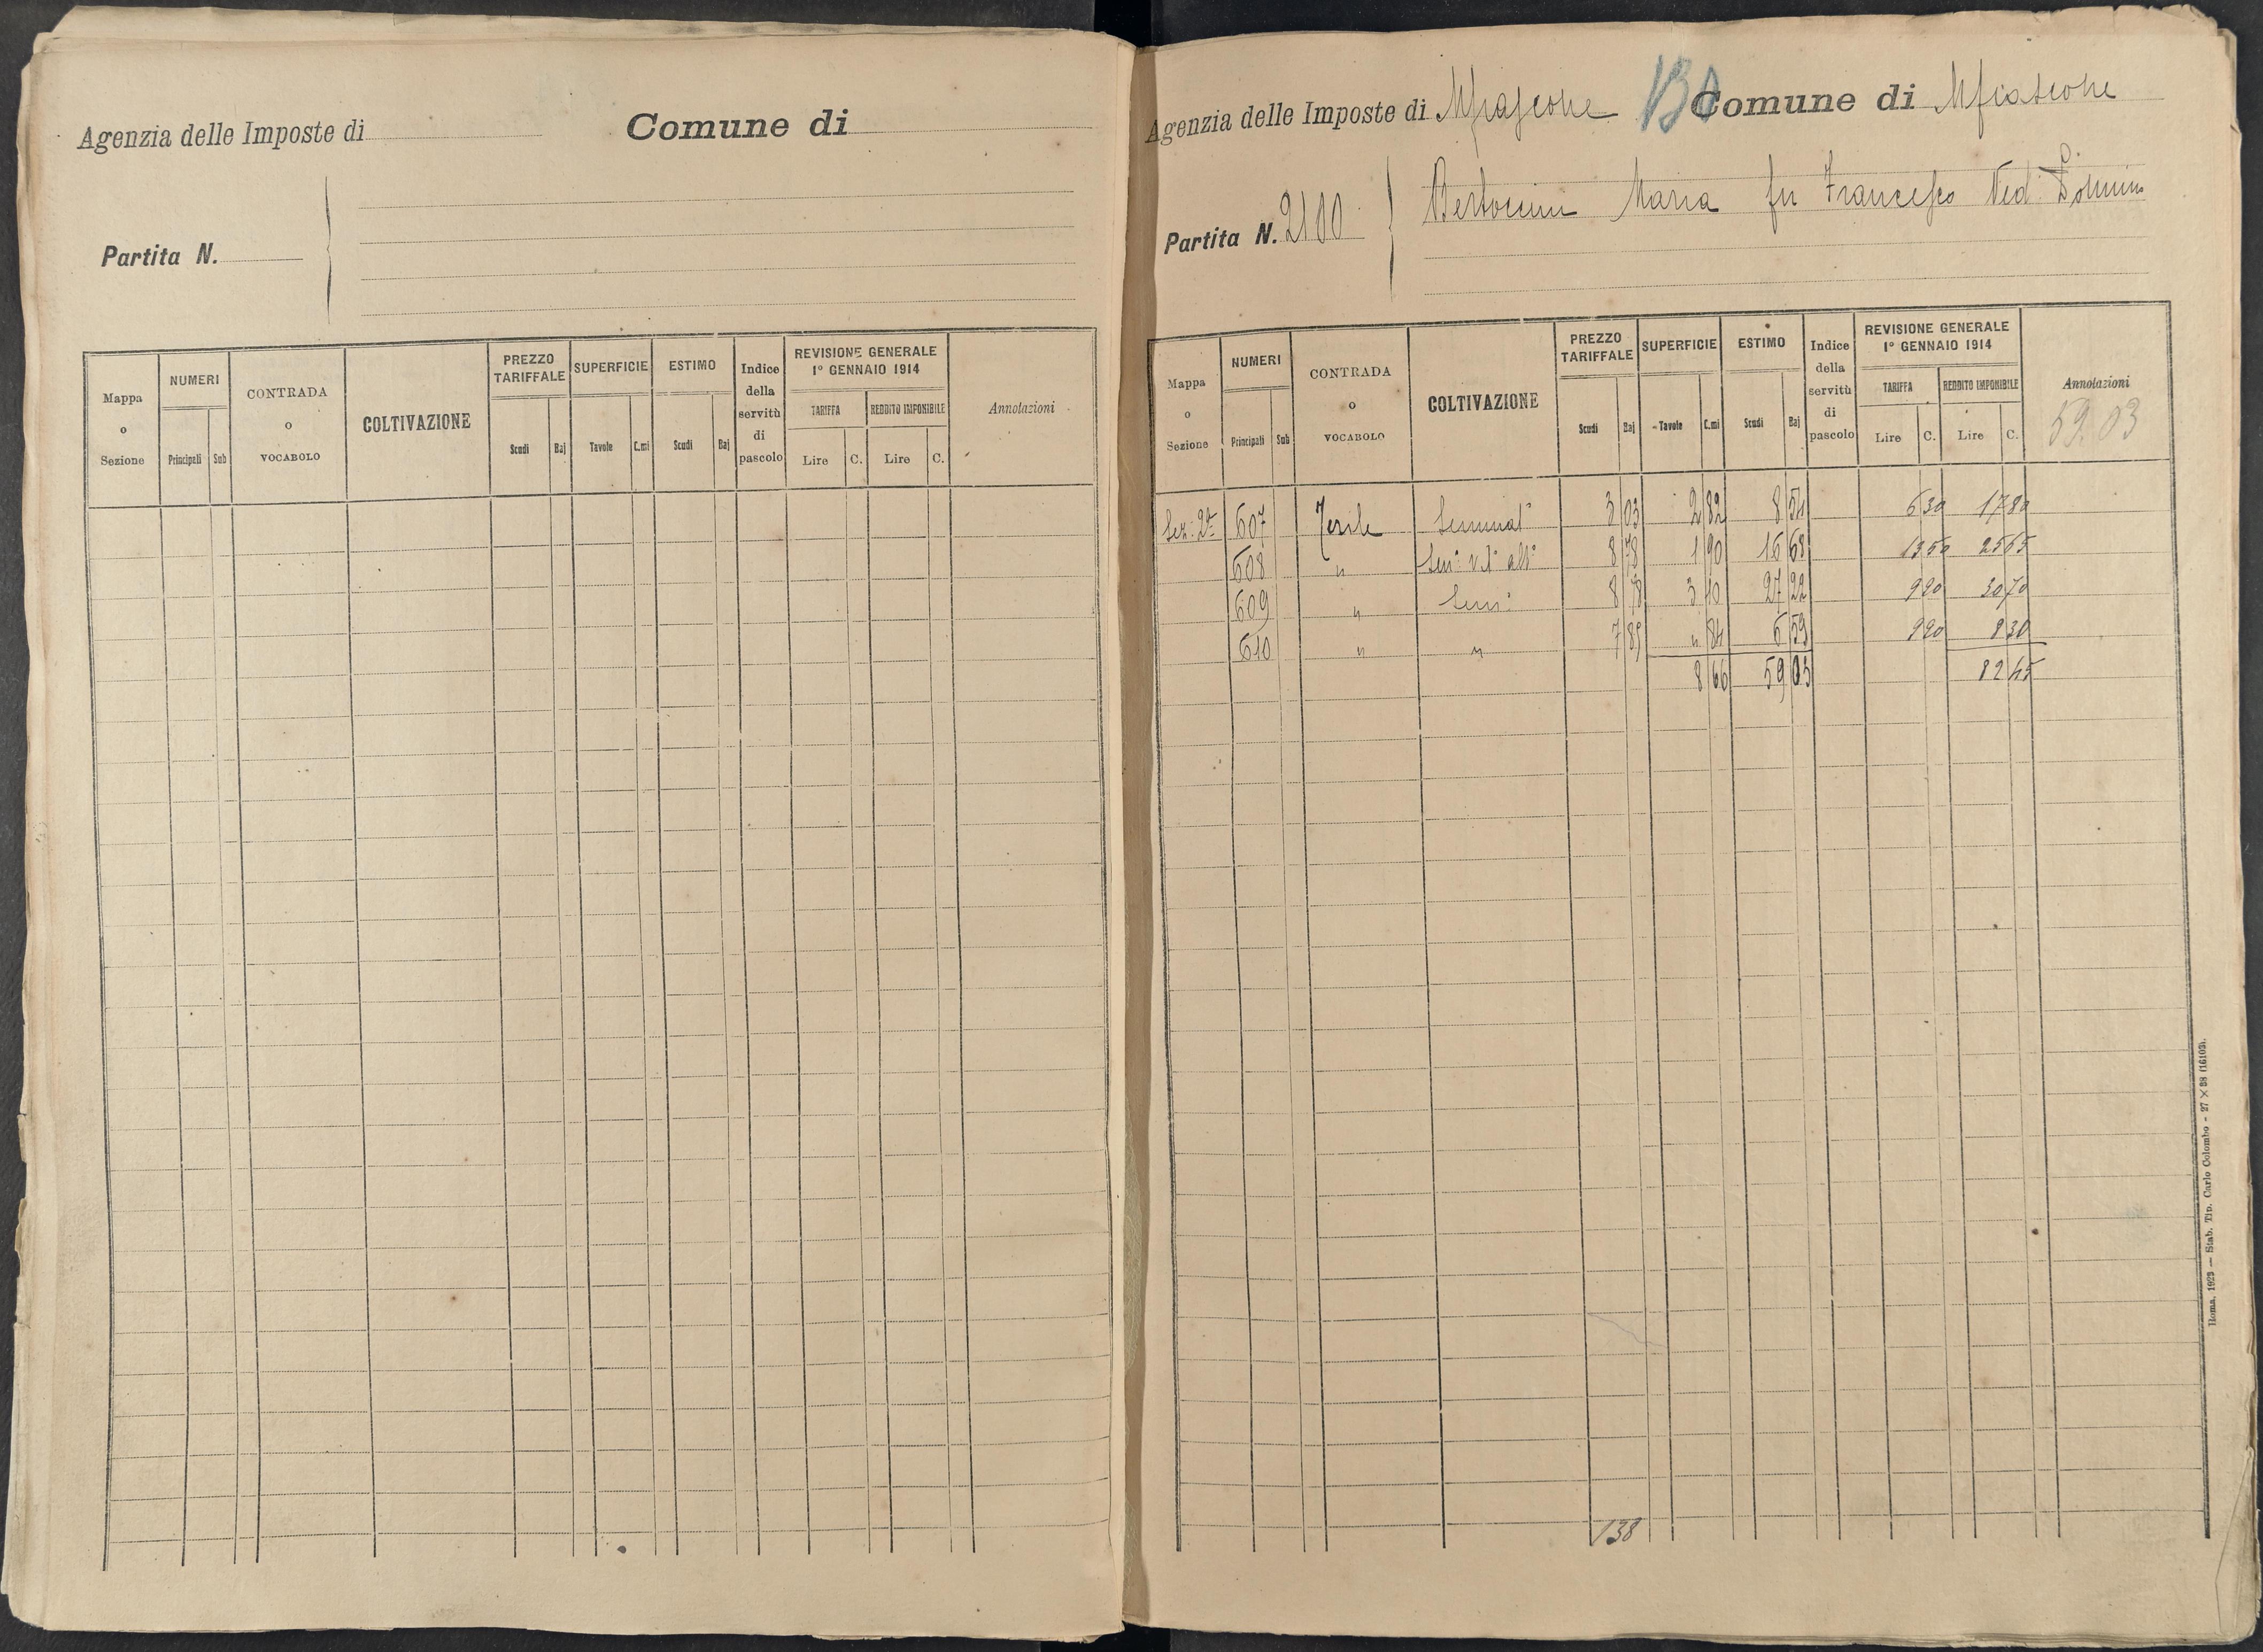 Agenzia delle Imposte di
Comune di
Partita N.
Mappa o Sezione
NUMERI
Principali
Sub
CONTRADA o VOCABOLO
COLTIVAZIONE
PREZZO TARIFFALE
Scudi
Baj
SUPERFICIE
Tavole
C.mi
ESTIMO
Scudi
Baj
Indice della servitù di pascolo
REVISIONE GENERALE 1° GENNAIO 1914
TARIFFA
REDDITO IMPONIBILE
Lire
C.
Lire
C.
Annotazioni
Agenzia delle Imposte di Mfiascone
Comune di Mfiascone
Partita N. 2100
Maria fu Francesco Ved:
Mappa o Sezione
NUMERI
Principali
Sub
CONTRADA o VOCABOLO
COLTIVAZIONE
PREZZO TARIFFALE
Scudi
Baj
SUPERFICIE
Tavole
C.mi
ESTIMO
Scudi
Baj
Indice della servitù di pascolo
REVISIONE GENERALE 1° GENNAIO 1914
TARIFFA
REDDITO IMPONIBILE
Lire
C.
Lire
C.
Annotazioni
59.03
Sez: 2ª 607 Seminat° 3 03 2 82 8 54 6 30 17 80
608 " 8 78 1 90 16 68 13 50 25 65
609 " Sem: 8 78 3 10 27 22 9 90 30 70
610 " " 7 85 " 84 6 59 9 90 8 30
8 66 59 03 82 45
138
Roma, 1923 — Stab. Tip. Carlo Colombo - 27 × 38 (16103).